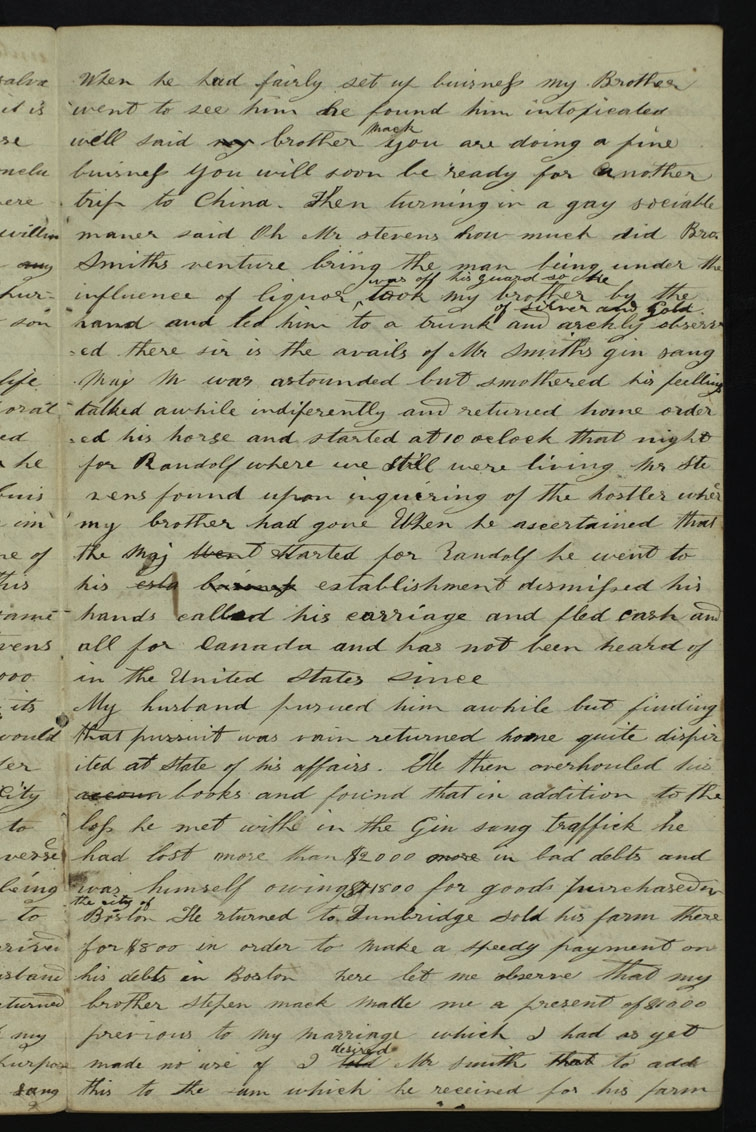 When he had fairly set up buisness my Brother
went to see him he found him intoxicated
well said my brother mack you are doing a fine
buisness you will soon be ready for another
trip to China. Then turning in a gay sociable
maner said Oh Mr stevens how much did Bro.
Smiths venture bring the man being under the
was off his guard so he
influence of liquor took my brother by the
of silver and Gold.
hand and led him to a trunk and archly observ
ed there sir is the avails of Mr Smiths gin sang
May M was astounded but smothered his feelling
talked awhile indiferently and returned home order
ed his horse and started at 10 oclock that night
for Randolf where we still were living Mr Ste
vens found upon inquiring of the hostler wher
my brother had gone When he ascertained that
the Maj went started for Randolf he went to
his esta buisness establishment dismissed his
hands called his carriage and fled cash and
all for Canada and has not been heard of
in the United States since
My husband pursued him awhile but finding
that pursuit was vain returned home quite dispir
ited at State of his affairs. He then overhouled his
accoun books and found that in addition to the
loss he met withe in the Gin sang traffick he
had lost more than $2000 more in bad debts and
was himself owing $1800 for goods purchased in
the city of
Boston He rturned to Tunbridge sold his farm there
for $800 in order to make a speedy payment on
his debts in Boston here let me observe that my
brother stepen mack made me a present of $1000
previous to my marriage which I had as yet
desired
made no use of I told Mr smith that to add
this to the sum which he received for his farm
salva
it is
willin
any
pur-
son
life
orat
ed
he
buis
im
ne of
this
same
vens
000
its
would
city
to
verse
being
to
rived
usband
turned
my
purpos
sang